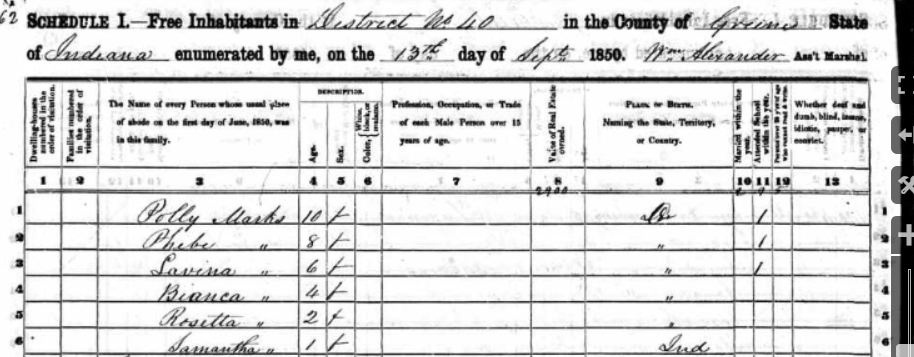 62
SCHEDULE I.—Free Inhabitants in District No 40 in the County of Greene State
of Indiana enumerated by me, on the 13th day of Sept 1850. Wm Alexander Ass't Marshal
Dwelling-houses numbered in the order of visitation.
Families numbered in the order of visitation.
The Name of every Person whose usual place of abode on the first day of June, 1850, was in this family.
DESCRIPTION.
Age.
Sex.
Color, White, black, or mulatto.
Profession, Occupation, or Trade of each Male Person over 15 years of age.
Value of Real Estate owned.
PLACE OF BIRTH. Naming the State, Territory, or Country.
Married within the year.
Attended School within the year.
Persons over 20 y'rs of age who cannot read & write.
Whether deaf and dumb, blind, insane, idiotic, pauper, or convict.
1 2 3 4 5 6 7 8 9 10 11 12 13
2900
1 Polly Marks 10 f O 1 1
2 Phebe " 8 f " 1 2
3 Lavina " 6 f " 1 3
4 Bianca " 4 f " 4
5 Rosetta " 2 f " 5
6 Samantha " 1 f Ind 6